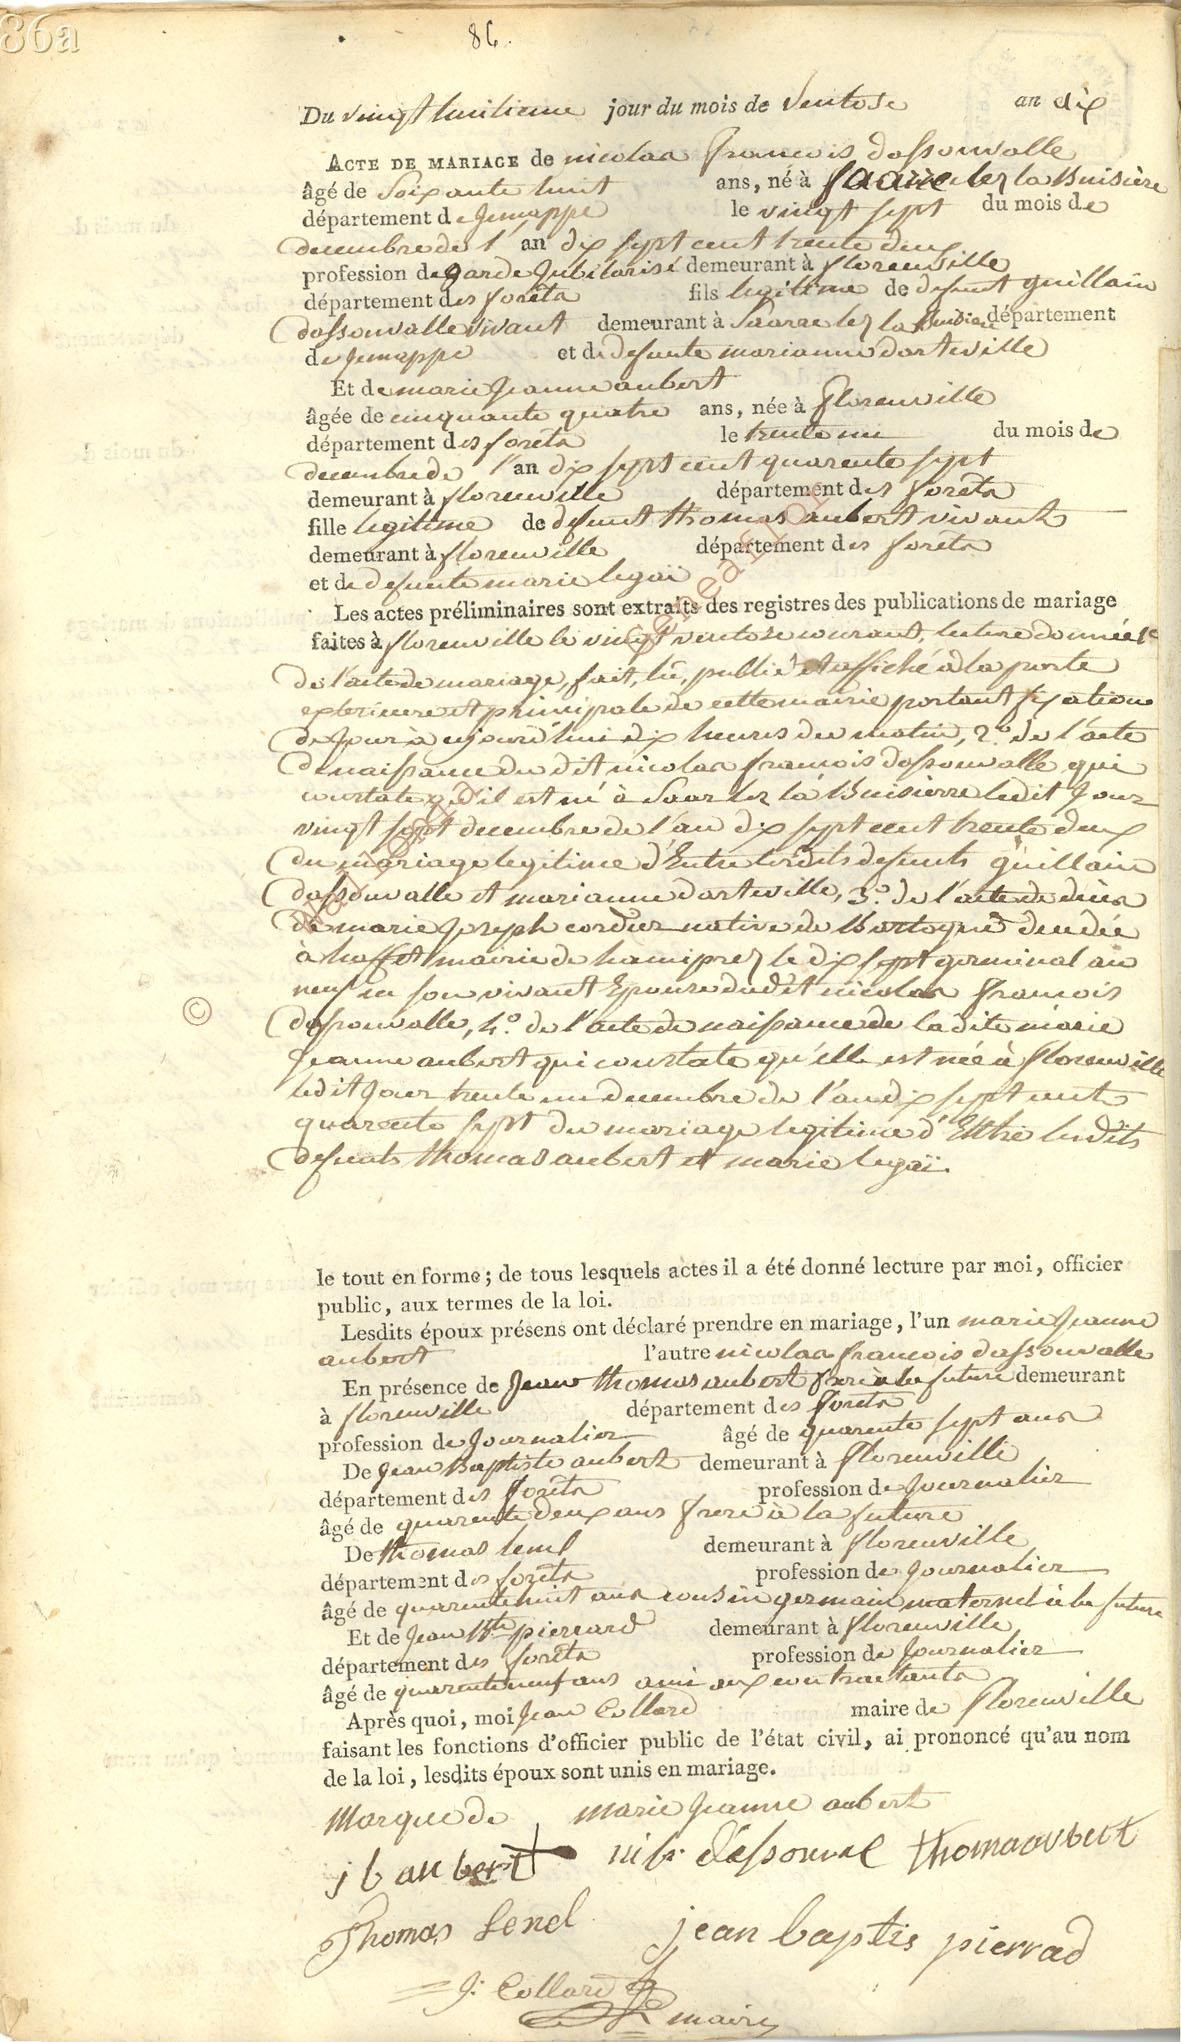 86a
86.
Du vingt huitieme jour du mois de ventose an dix
ACTE DE MARIAGE de nicolas francois dassonvalle
âgé de soixante huit ans, né à lez la Buisière
département de Jemappe le vingt sept du mois de
decembre de l'an dix sept cent trente deux
profession de garde Jubilarisé demeurant à florenville
département des forêts fils legitime de defunt guillain
dassonvalle vivant demeurant à Saarre lez la Buisiere département
de Jemappe et de defunte marianne dorteville
Et de marie Jeanne aubert
âgée de cinquante quatre ans, née à florenville
département des forêts le trente un du mois de
decembre de l'an dix sept cent quarente sept
demeurant à florenville département des forêts
fille legitime de defunt thomas aubert vivant
demeurant à florenville département des forêts
et de defunte marie legaï
Les actes préliminaires sont extraits des registres des publications de mariage
faites à florenville le vingt ventose courant, lecture donnée 1°
de l'acte de mariage, fait, lu, publié et affiché à la porte
exterieure et principale de cette mairie portant fixation
de Jour à aujourd'hui dix heures du matin, 2.° de l'acte
de naissance du dit nicolas francois dassonvalle qui
constate qu'il est né à Saar lez la Buisierre ledit Jour
vingt sept decembre de l'an dix sept cent trente deux
du mariage legitime d'Entre lesdits defunts guillain
dassonvalle et marianne dorteville, 3.° de l'acte de décès
de marie Joseph cordier native de Bastogne decedée
à mairie de hamiprez le dix sept germinal an
neuf en son vivant Epouse dudit nicolas francois
dassonvalle, 4.° de l'acte de naissance de ladite marie
Jeanne aubert qui constate qu'elle est née à florenville
ledit Jour trente un decembre de l'an dix sept cent
quarente sept du mariage legitime d'Entre lesdits
defunts thomas aubert et marie legaï.
©
le tout en forme; de tous lesquels actes il a été donné lecture par moi, officier
public, aux termes de la loi.
Lesdits époux présens ont déclaré prendre en mariage, l'un marie Jeanne
aubert l'autre nicolas francois dassonvalle
En présence de Jean thomas aubert frere à la future demeurant
à florenville département des forêts
profession de Journalier âgé de quarente sept ans
De Jean Baptiste aubert demeurant à florenville
département des forêts profession de Journalier
âgé de quarente deux ans frere à la future
De thomas lenel demeurant à florenville
département des forêts profession de Journalier
âgé de quarente huit ans cousin germain maternel à la future
Et de Jean Bte pierrard demeurant à florenville
département des forêts profession de Journalier
âgé de quarente neuf ans ami aux contractants
Après quoi, moi Jean Collard maire de florenville
faisant les fonctions d'officier public de l'état civil, ai prononcé qu'au nom
de la loi, lesdits époux sont unis en mariage.
Marque de marie Jeanne aubert
j b aubert thomas aubert
Thomas Lenel jean baptis pierrad
J: Collard
maire